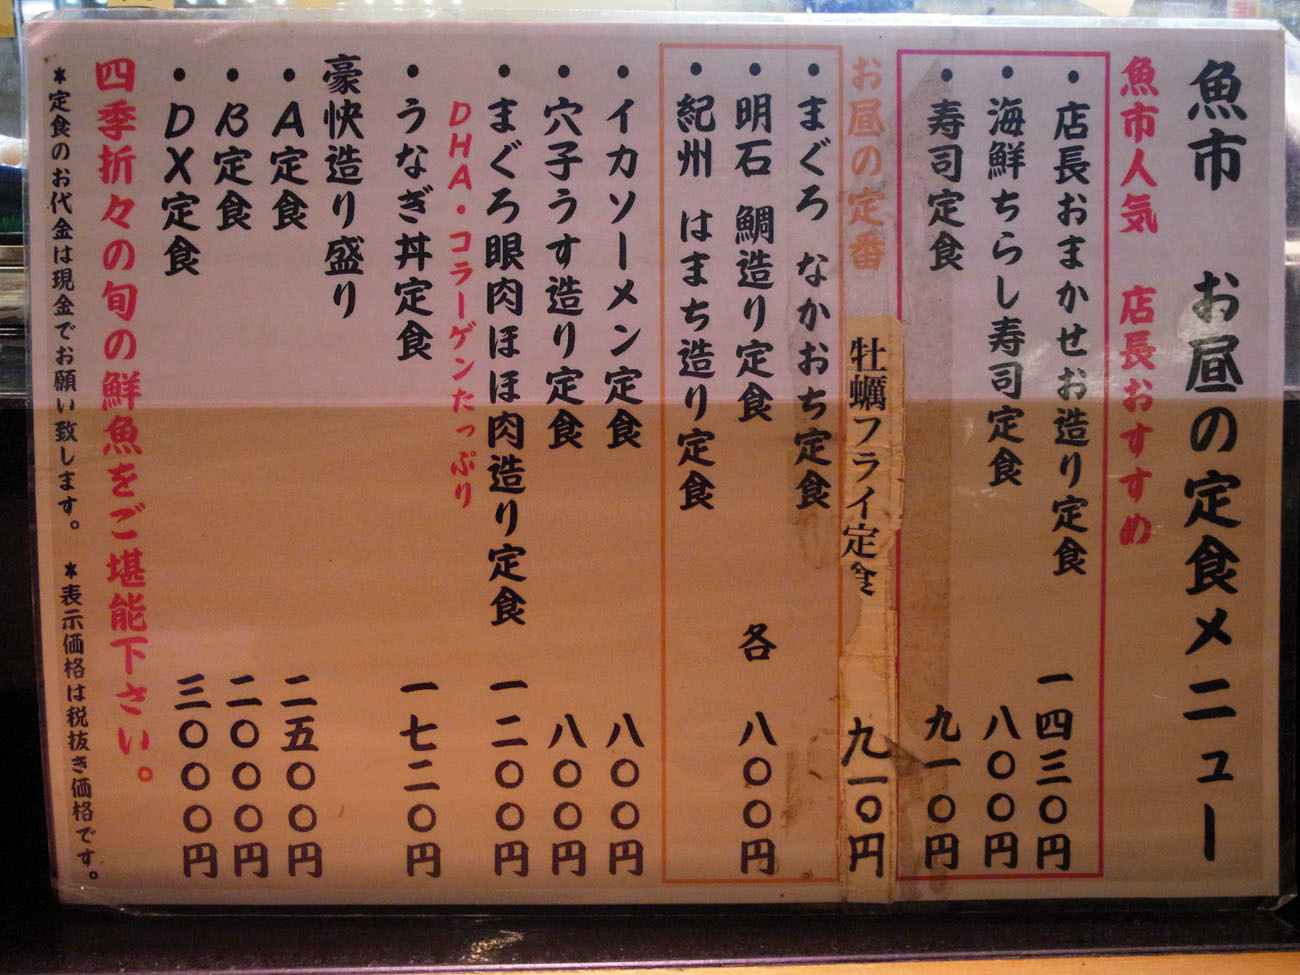 魚市 お昼の定食メニュー
魚市人気 店長おすすめ
・店長おまかせお造り定食 一四三〇円
・海鮮ちらし寿司定食 八〇〇円
・寿司定食 九一〇円
お昼の定番
牡蠣フライ定食 九一〇円
・まぐろ なかおち定食
・明石 鯛造り定食 各 八〇〇円
・紀州 はまち造り定食
・イカソーメン定食 八〇〇円
・穴子うす造り定食 八〇〇円
・まぐろ眼肉ほほ肉造り定食 一二〇〇円
DHA・コラーゲンたっぷり
・うなぎ丼定食 一七二〇円
豪快造り盛り
・A定食 二五〇〇円
・B定食 二〇〇〇円
・DX定食 三〇〇〇円
四季折々の旬の鮮魚をご堪能下さい。
*定食のお代金は現金でお願い致します。 *表示価格は税抜き価格です。